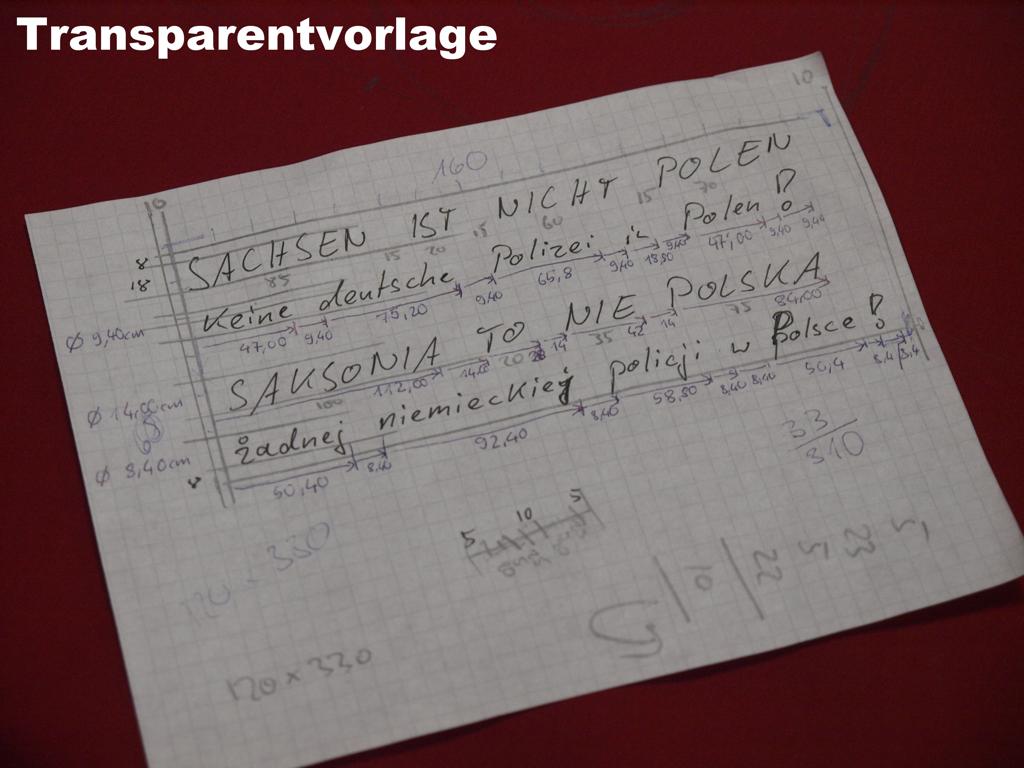 Transparentvorlage
10
160
10
8 SACHSEN IST NICHT POLEN
85 15 20 15 60 15 70
18 Keine deutsche Polizei in Polen !
Ø 9,40cm 47,00 9,40 75,20 9,40 65,8 9,40 18,80 9,40 47,00 9,40 9,40
SAKSONIA TO NIE POLSKA
Ø 14,00cm 100 112,00 14,00 20 28 14 35 42 14 75 84,00
żadnej niemieckiej policji w Polsce !
Ø 8,40cm 50,40 8,40 92,40 8,40 58,80 8,40 8,40 50,4 8,4 8,4
33
310
5 10 5
120 × 330
10 22 5 23 5
120 × 330